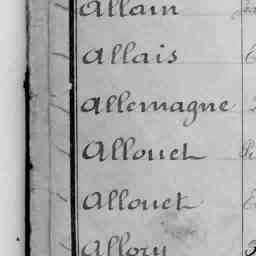 Allain
Allais
Allemagne
Allouet
Allouet
Allory